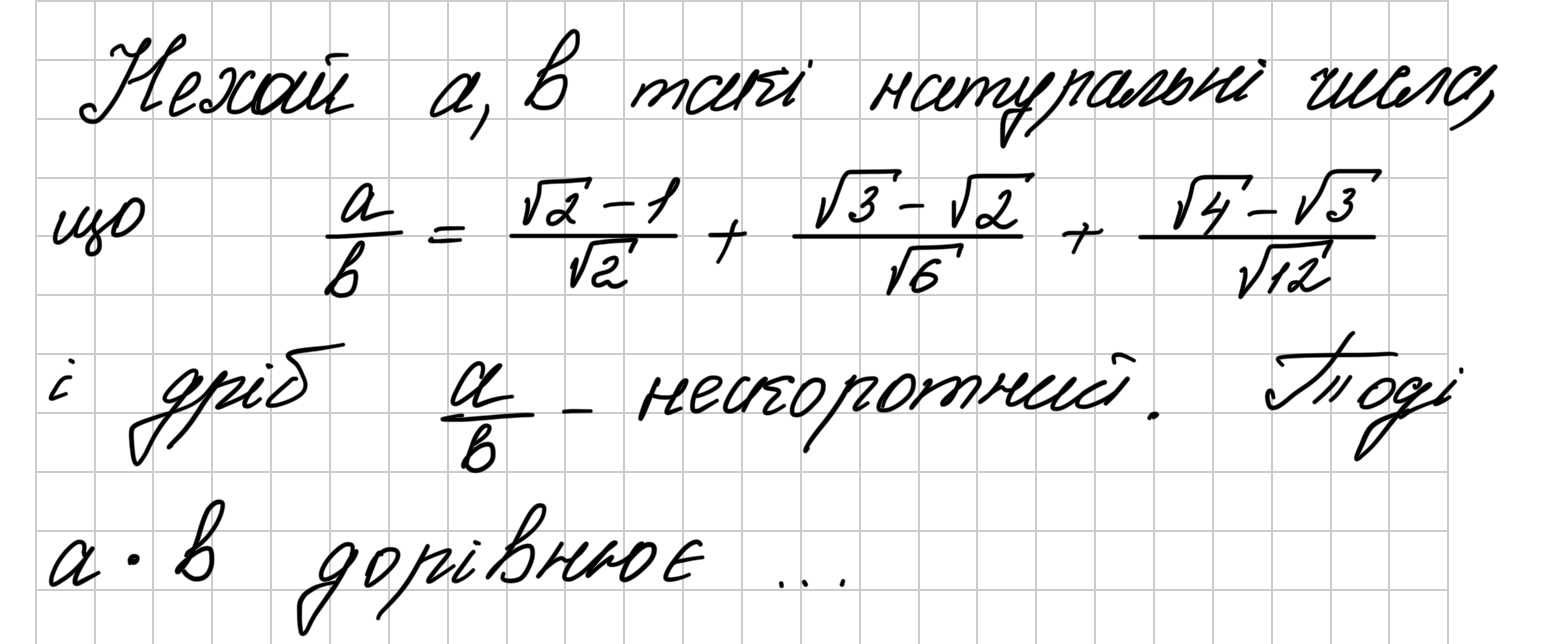 Нехай a, b такі натуральні числа,
що a/b = (√2 − 1)/√2 + (√3 − √2)/√6 + (√4 − √3)/√12
і дріб a/b – нескоротний. Тоді
a · b дорівнює ...